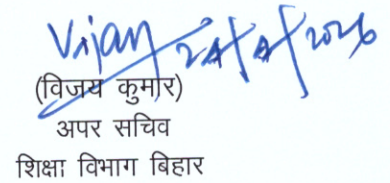 Vijay 24/2/2026
(विजय कुमार)
अपर सचिव
शिक्षा विभाग बिहार